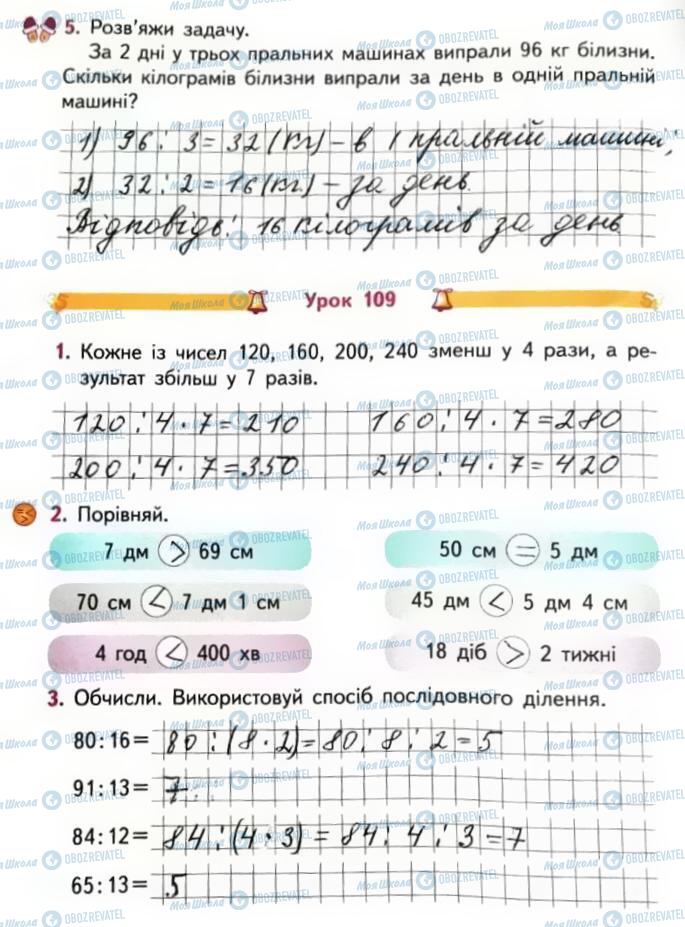 5. Розв'яжи задачу.
За 2 дні у трьох пральних машинах випрали 96 кг білизни.
Скільки кілограмів білизни випрали за день в одній пральній
машині?
1) 96 : 3 = 32 (кг) – в 1 пральній машині,
2) 32 : 2 = 16 (кг) – за день.
Відповідь: 16 кілограмів за день
Урок 109
1. Кожне із чисел 120, 160, 200, 240 зменш у 4 рази, а ре-
зультат збільш у 7 разів.
120 : 4 · 7 = 210 160 : 4 · 7 = 280
200 : 4 · 7 = 350 240 : 4 · 7 = 420
2. Порівняй.
7 дм > 69 см 50 см = 5 дм
70 см < 7 дм 1 см 45 дм < 5 дм 4 см
4 год < 400 хв 18 діб > 2 тижні
3. Обчисли. Використовуй спосіб послідовного ділення.
80 : 16 = 80 : (8 · 2) = 80 : 8 : 2 = 5
91 : 13 = 7
84 : 12 = 84 : (4 · 3) = 84 : 4 : 3 = 7
65 : 13 = 5
Моя Школа OBOZREVATEL